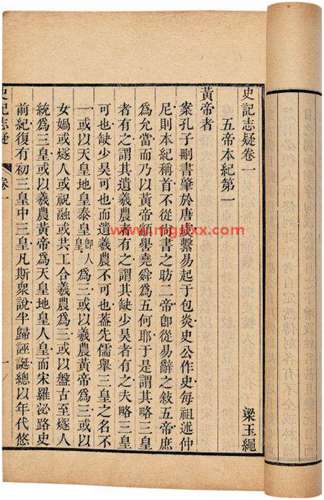 史記志疑卷一 梁玉繩
五帝本紀第一
黃帝者
案孔子刪書肇於唐虞繫易起于包炎史公作史每祖述仲
尼則本紀稱首不從尚書之昉二帝卽從易辭之敘五帝庶
為允當而乃以黃帝顓嚳堯舜為五何耶于是謂其略三皇
者有之謂其遺羲農者有之謂其缺少昊者有之夫略三皇
可也缺少昊可也而遺羲農不可也葢先儒舉三皇之名不
一或以天皇地皇泰皇卽人皇為三或以羲農黃帝為三或以
女媧或燧人或祝融或共工合羲農為三或以盤古至燧人
統為三皇或以羲農黃帝為天皇地皇人皇而宋羅泌路史
前紀復有初三皇中三皇凡斯眾說半歸誣誕總以年代悠
史記志疑 卷一 一